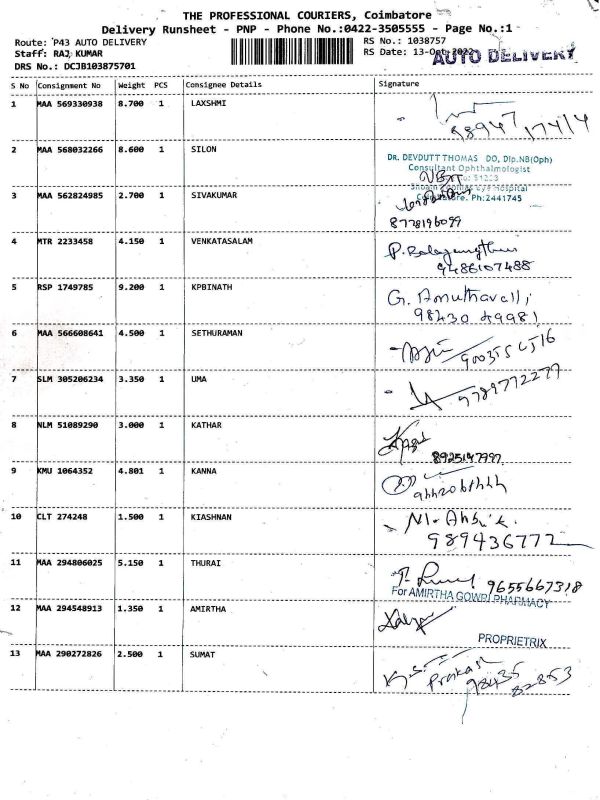 THE PROFESSIONAL COURIERS, Coimbatore
Delivery Runsheet - PNP - Phone No.:0422-3505555 - Page No.:1
Route: P43 AUTO DELIVERY
RS No.: 1038757
Staff: RAJ KUMAR
RS Date: 13-Oct-2022
AUTO DELIVERY
DRS No.: DCJB103875701
S No Consignment No Weight PCS Consignee Details Signature
1 MAA 569330938 8.700 1 LAXSHMI
98947 17414
2 MAA 568032266 8.600 1 SILON
DR. DEVDUTT THOMAS DO, Dip.NB(Oph)
Consultant Ophthalmologist
Eye Hospital
Ph:2441745
3 MAA 562824985 2.700 1 SIVAKUMAR
8778196099
4 MTR 2233458 4.150 1 VENKATASALAM
9486107488
5 RSP 1749785 9.200 1 KPBINATH
G. Amuthavalli
98430 49981
6 MAA 566608641 4.500 1 SETHURAMAN
7 SLM 305206234 3.350 1 UMA
9789772277
8 NLM 51089290 3.000 1 KATHAR
8925147997
9 KMU 1064352 4.801 1 KANNA
10 CLT 274248 1.500 1 KIASHNAN
989436772
11 MAA 294806025 5.150 1 THURAI
9655667318
For AMIRTHA GOWRI PHARMACY
12 MAA 294548913 1.350 1 AMIRTHA
PROPRIETRIX
13 MAA 290272826 2.500 1 SUMAT
K.S. Prakash
98435
82853